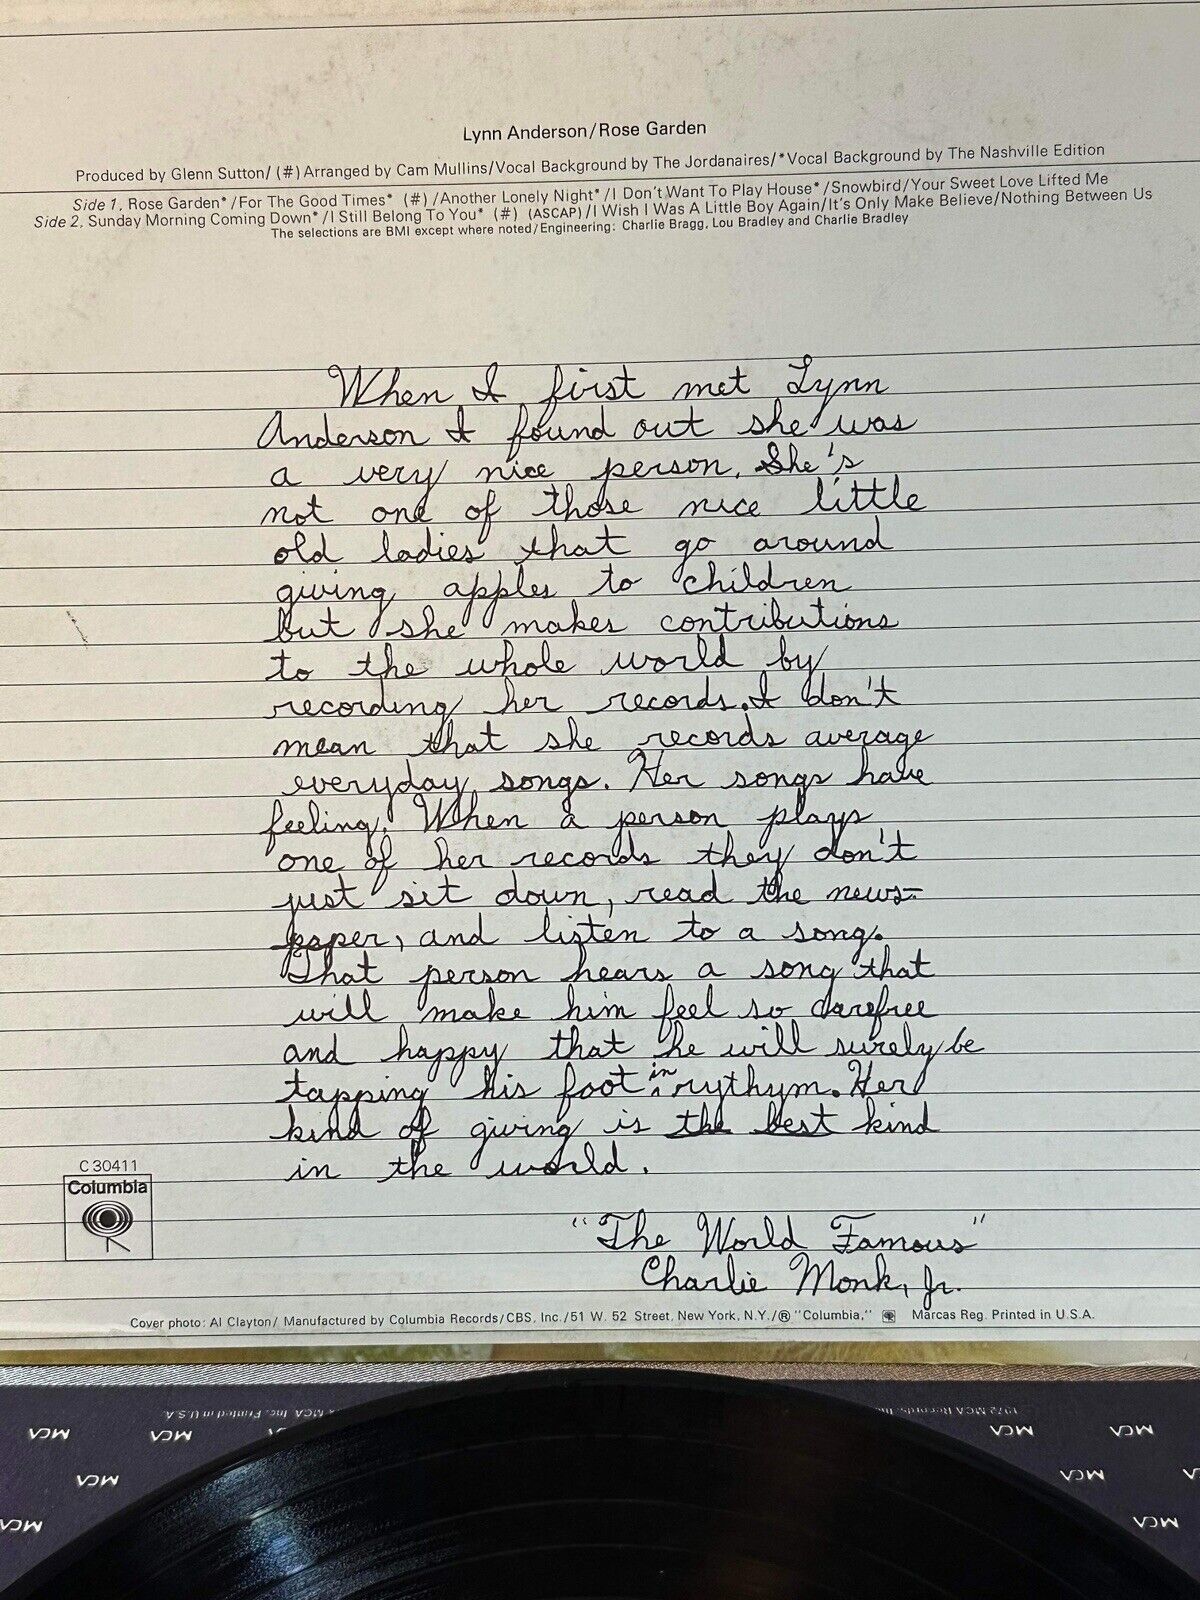 Lynn Anderson/Rose Garden
Produced by Glenn Sutton/ (#) Arranged by Cam Mullins/Vocal Background by The Jordanaires/*Vocal Background by The Nashville Edition
Side 1, Rose Garden* /For The Good Times* (#) /Another Lonely Night* /I Don't Want To Play House* /Snowbird/Your Sweet Love Lifted Me
Side 2, Sunday Morning Coming Down* /I Still Belong To You* (#) (ASCAP)/I Wish I Was A Little Boy Again/It's Only Make Believe/Nothing Between Us
The selections are BMI except where noted/Engineering: Charlie Bragg, Lou Bradley and Charlie Bradley
When I first met Lynn
Anderson I found out she was
a very nice person. She's
not one of those nice little
old ladies that go around
giving apples to children
but she makes contributions
to the whole world by
recording her records. I don't
mean that she records average
everyday songs. Her songs have
feeling. When a person plays
one of her records they don't
just sit down, read the news-
paper, and listen to a song.
That person hears a song that
will make him feel so carefree
and happy that he will surely be
tapping his foot in rythym. Her
kind of giving is the best kind
in the world.
"The World Famous"
Charlie Monk, Jr.
C 30411
Columbia
Cover photo: Al Clayton/ Manufactured by Columbia Records/CBS, Inc./51 W. 52 Street, New York, N.Y./® "Columbia," Marcas Reg. Printed in U.S.A.
MCA Inc. Printed in U.S.A.
1972 MCA Records, Inc.
MCA MCA MCA MCA
MCA MCA
MCA MCA